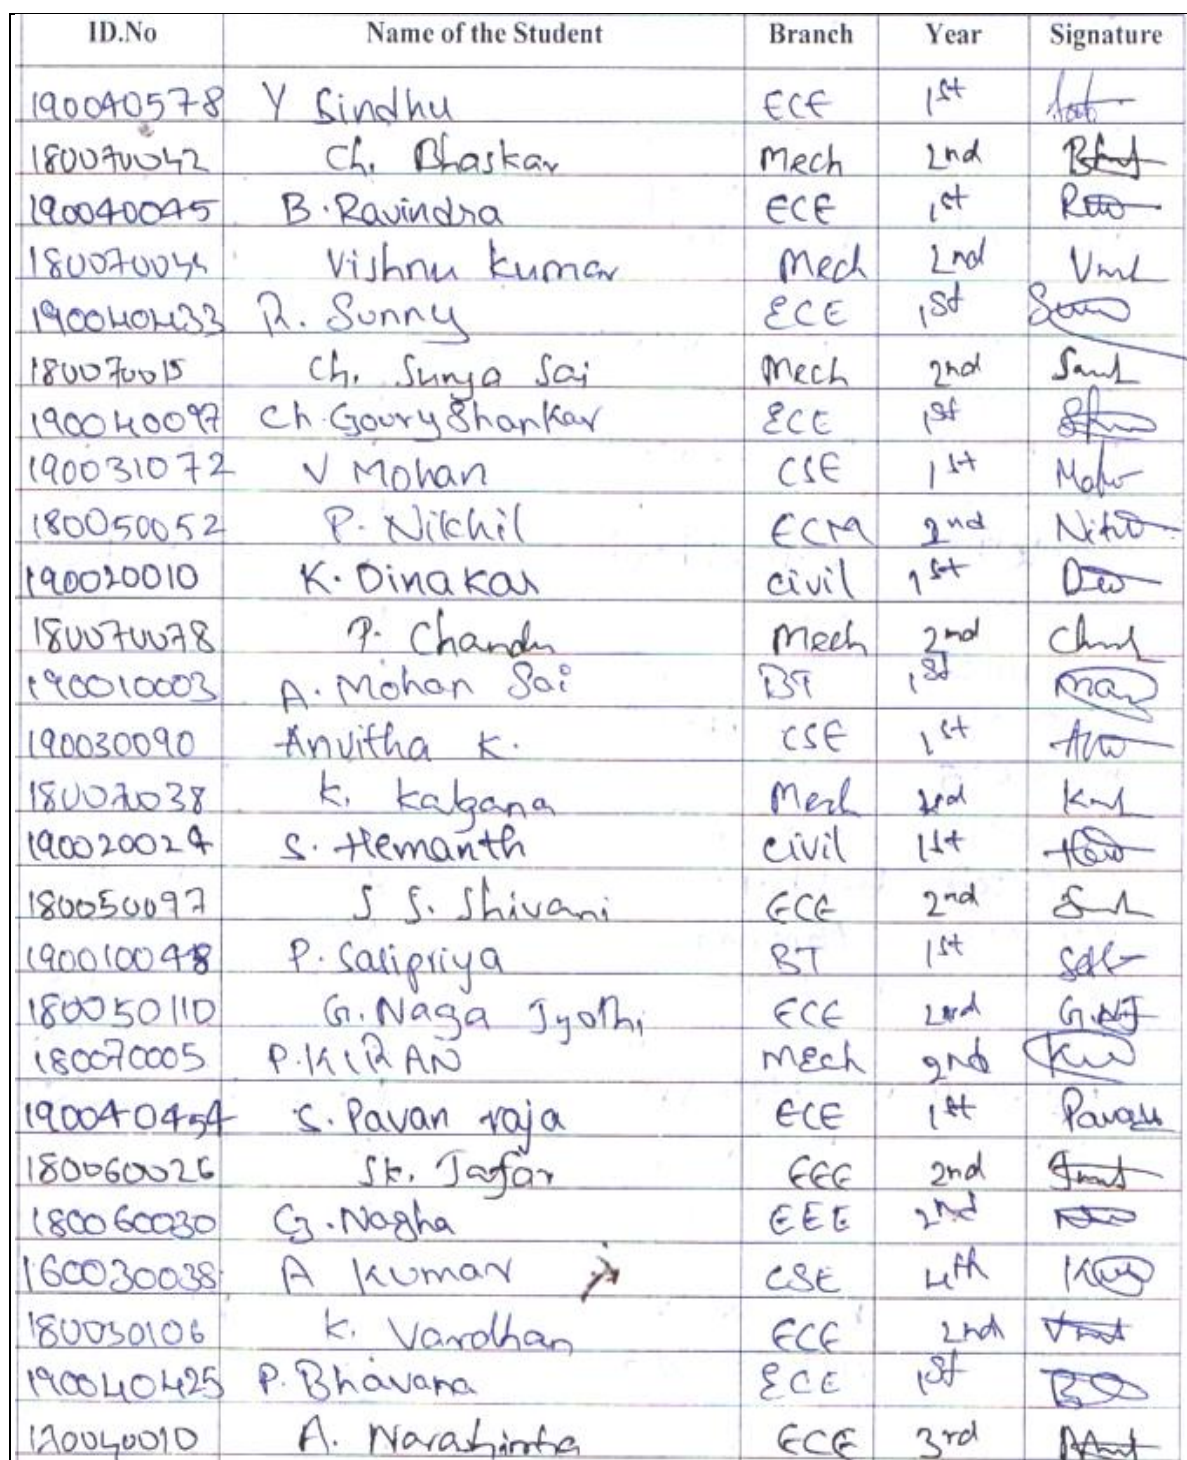 ID.No Name of the Student Branch Year Signature
190040578 Y Sindhu ECE 1st
180070042 Ch. Bhaskar Mech 2nd
190040045 B. Ravindra ECE 1st
180070044 Vishnu kumar Mech 2nd
190040433 R. Sunny ECE 1st
180070015 Ch. Surya Sai Mech 2nd
190040097 Ch. Goury Shankar ECE 1st
190031072 V Mohan CSE 1st
180050052 P. Nikhil ECM 2nd
190020010 K. Dinakar civil 1st
180070078 P. Chandu Mech 2nd
190010003 A. Mohan Sai BT 1st
190030090 Anvitha K. CSE 1st
180070038 K. Kalpana Mech 2nd
190020024 S. Hemanth civil 1st
180050097 S S. Shivani ECE 2nd
190010048 P. Saripriya BT 1st
180050110 G. Naga Jyothi ECE 2nd G.NJ
180070005 P. KIRAN Mech 2nd
190040454 S. Pavan raja ECE 1st
180060026 Sk. Jafar EEE 2nd
180060030 G. Nagha EEE 2nd
160030038 A Kumar CSE 4th
180050106 K. Vardhan ECE 2nd
190040425 P. Bhavana ECE 1st
170040010 A. Narashimha ECE 3rd